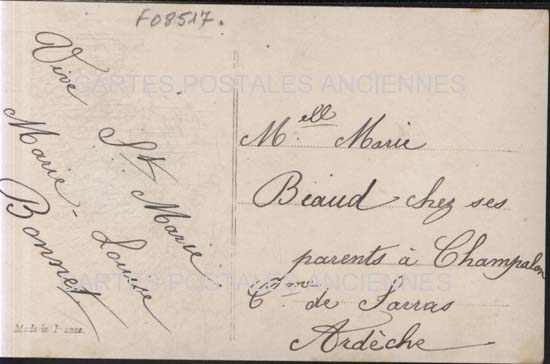 F08517.
Vive St Marie
Marie-Louise
Bonnet
CARTES POSTALES ANCIENNES
Melle Marie
Béaud chez ses
parents à Champalon
Cmme de Sarras
Ardèche
CARTES POSTALES ANCIENNES
Made in France.